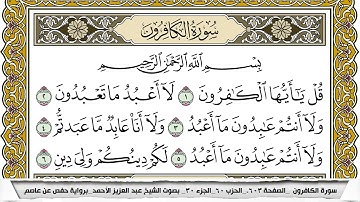 سُورَةُ الكَافِرُونَ
بِسْمِ اللَّهِ الرَّحْمَٰنِ الرَّحِيمِ
قُلْ يَا أَيُّهَا الْكَافِرُونَ ١ لَا أَعْبُدُ مَا تَعْبُدُونَ ٢
وَلَا أَنتُمْ عَابِدُونَ مَا أَعْبُدُ ٣ وَلَا أَنَا عَابِدٌ مَّا عَبَدتُّمْ ٤
وَلَا أَنتُمْ عَابِدُونَ مَا أَعْبُدُ ٥ لَكُمْ دِينُكُمْ وَلِيَ دِينِ ٦
سورة الكافرون _الصفحة ٦٠٣_ الحزب ٦٠_الجزء ٣٠_ بصوت الشيخ عبد العزيز الأحمد_برواية حفص عن عاصم